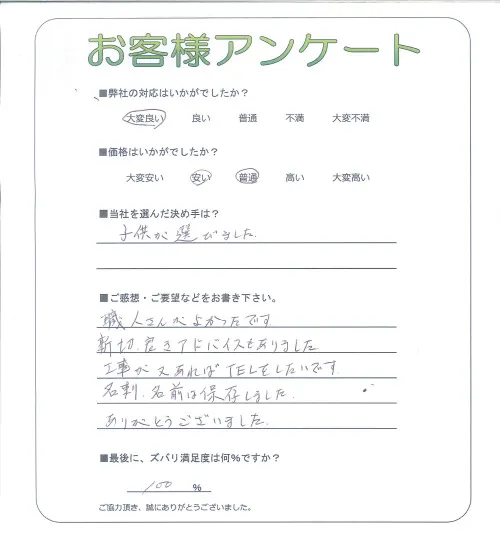 お客様アンケート
■弊社の対応はいかがでしたか？
大変良い 良い 普通 不満 大変不満
■価格はいかがでしたか？
大変安い 安い 普通 高い 大変高い
■当社を選んだ決め手は？
子供が選びました.
■ご感想・ご要望などをお書き下さい。
職人さんがよかったです
切.良きアドバイスもありました
工事が又あればTELをしたいです.
名刺.名前は保存しました.
ありがとうございました.
■最後に、ズバリ満足度は何%ですか？
100 %
ご協力頂き、誠にありがとうございました。